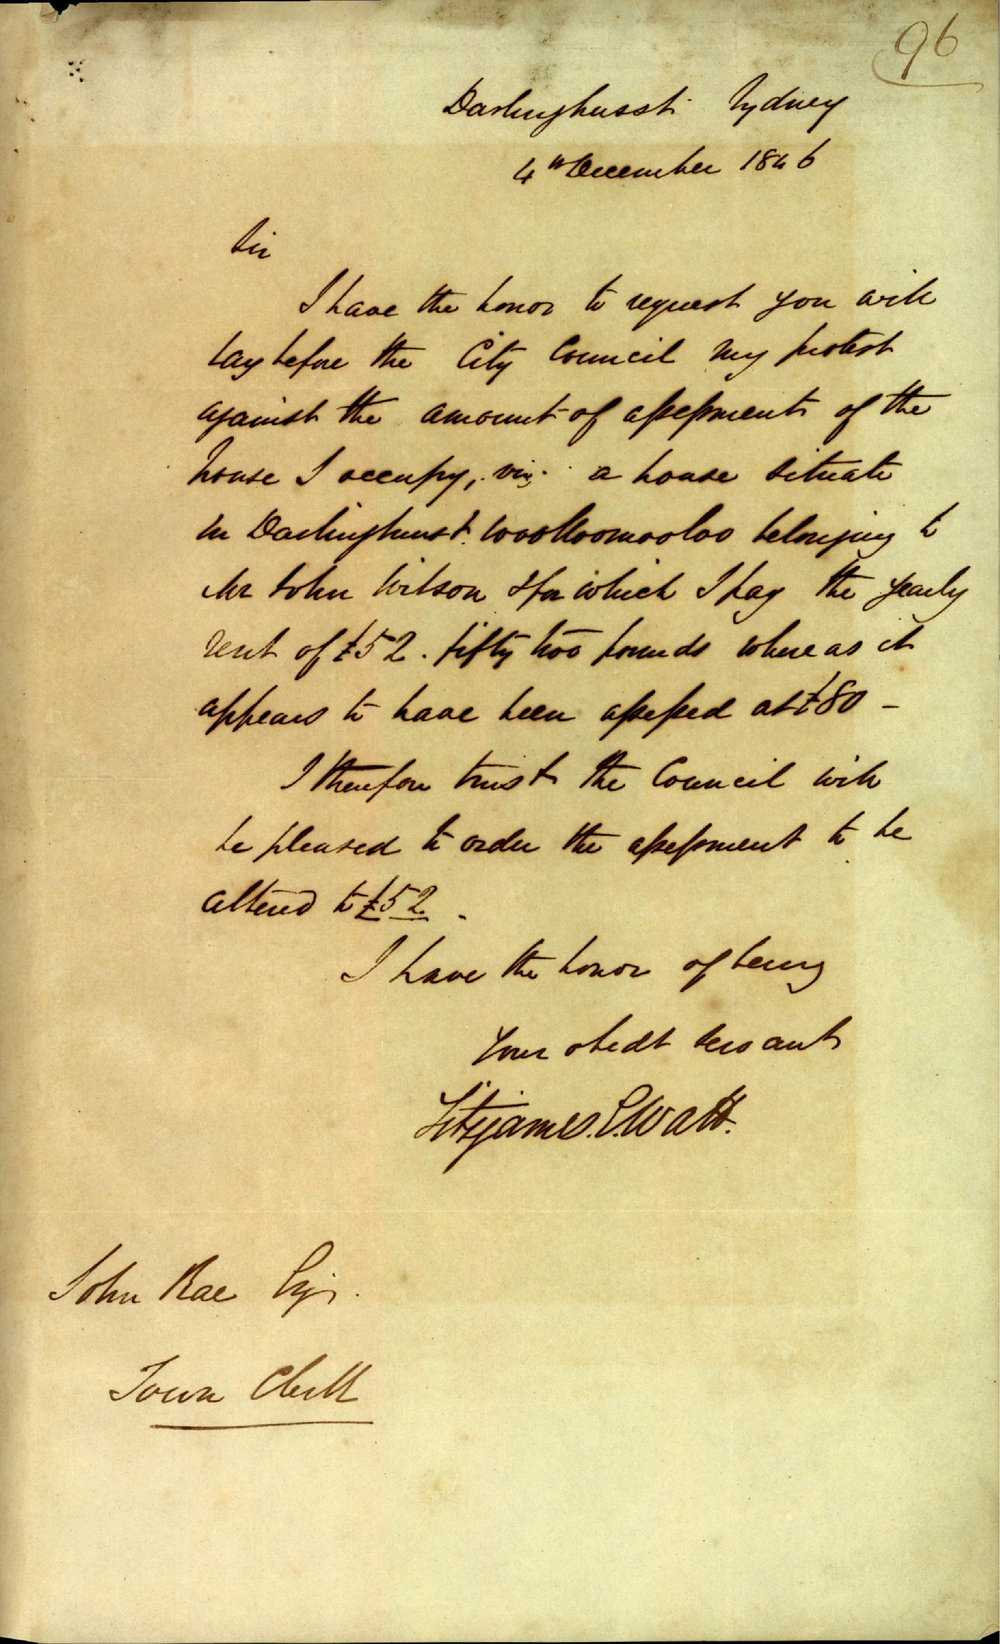 96
Darlinghurst Sydney
4th December 1846
Sir
I have the honor to request you will
lay before the City Council my protest
against the amount of assessment of the
house I occupy, viz. a house situate
in Darlinghurst Woolloomooloo belonging to
Mr John Wilson & for which I pay the yearly
rent of £52. fifty two pounds whereas it
appears to have been assessed at £80 –
I therefore trust the Council will
be pleased to order the assessment to be
altered to £52.
I have the honor of being
Your obedt servant
Fitzjames. E. Watt.
John Rae Esqr.
Town Clerk